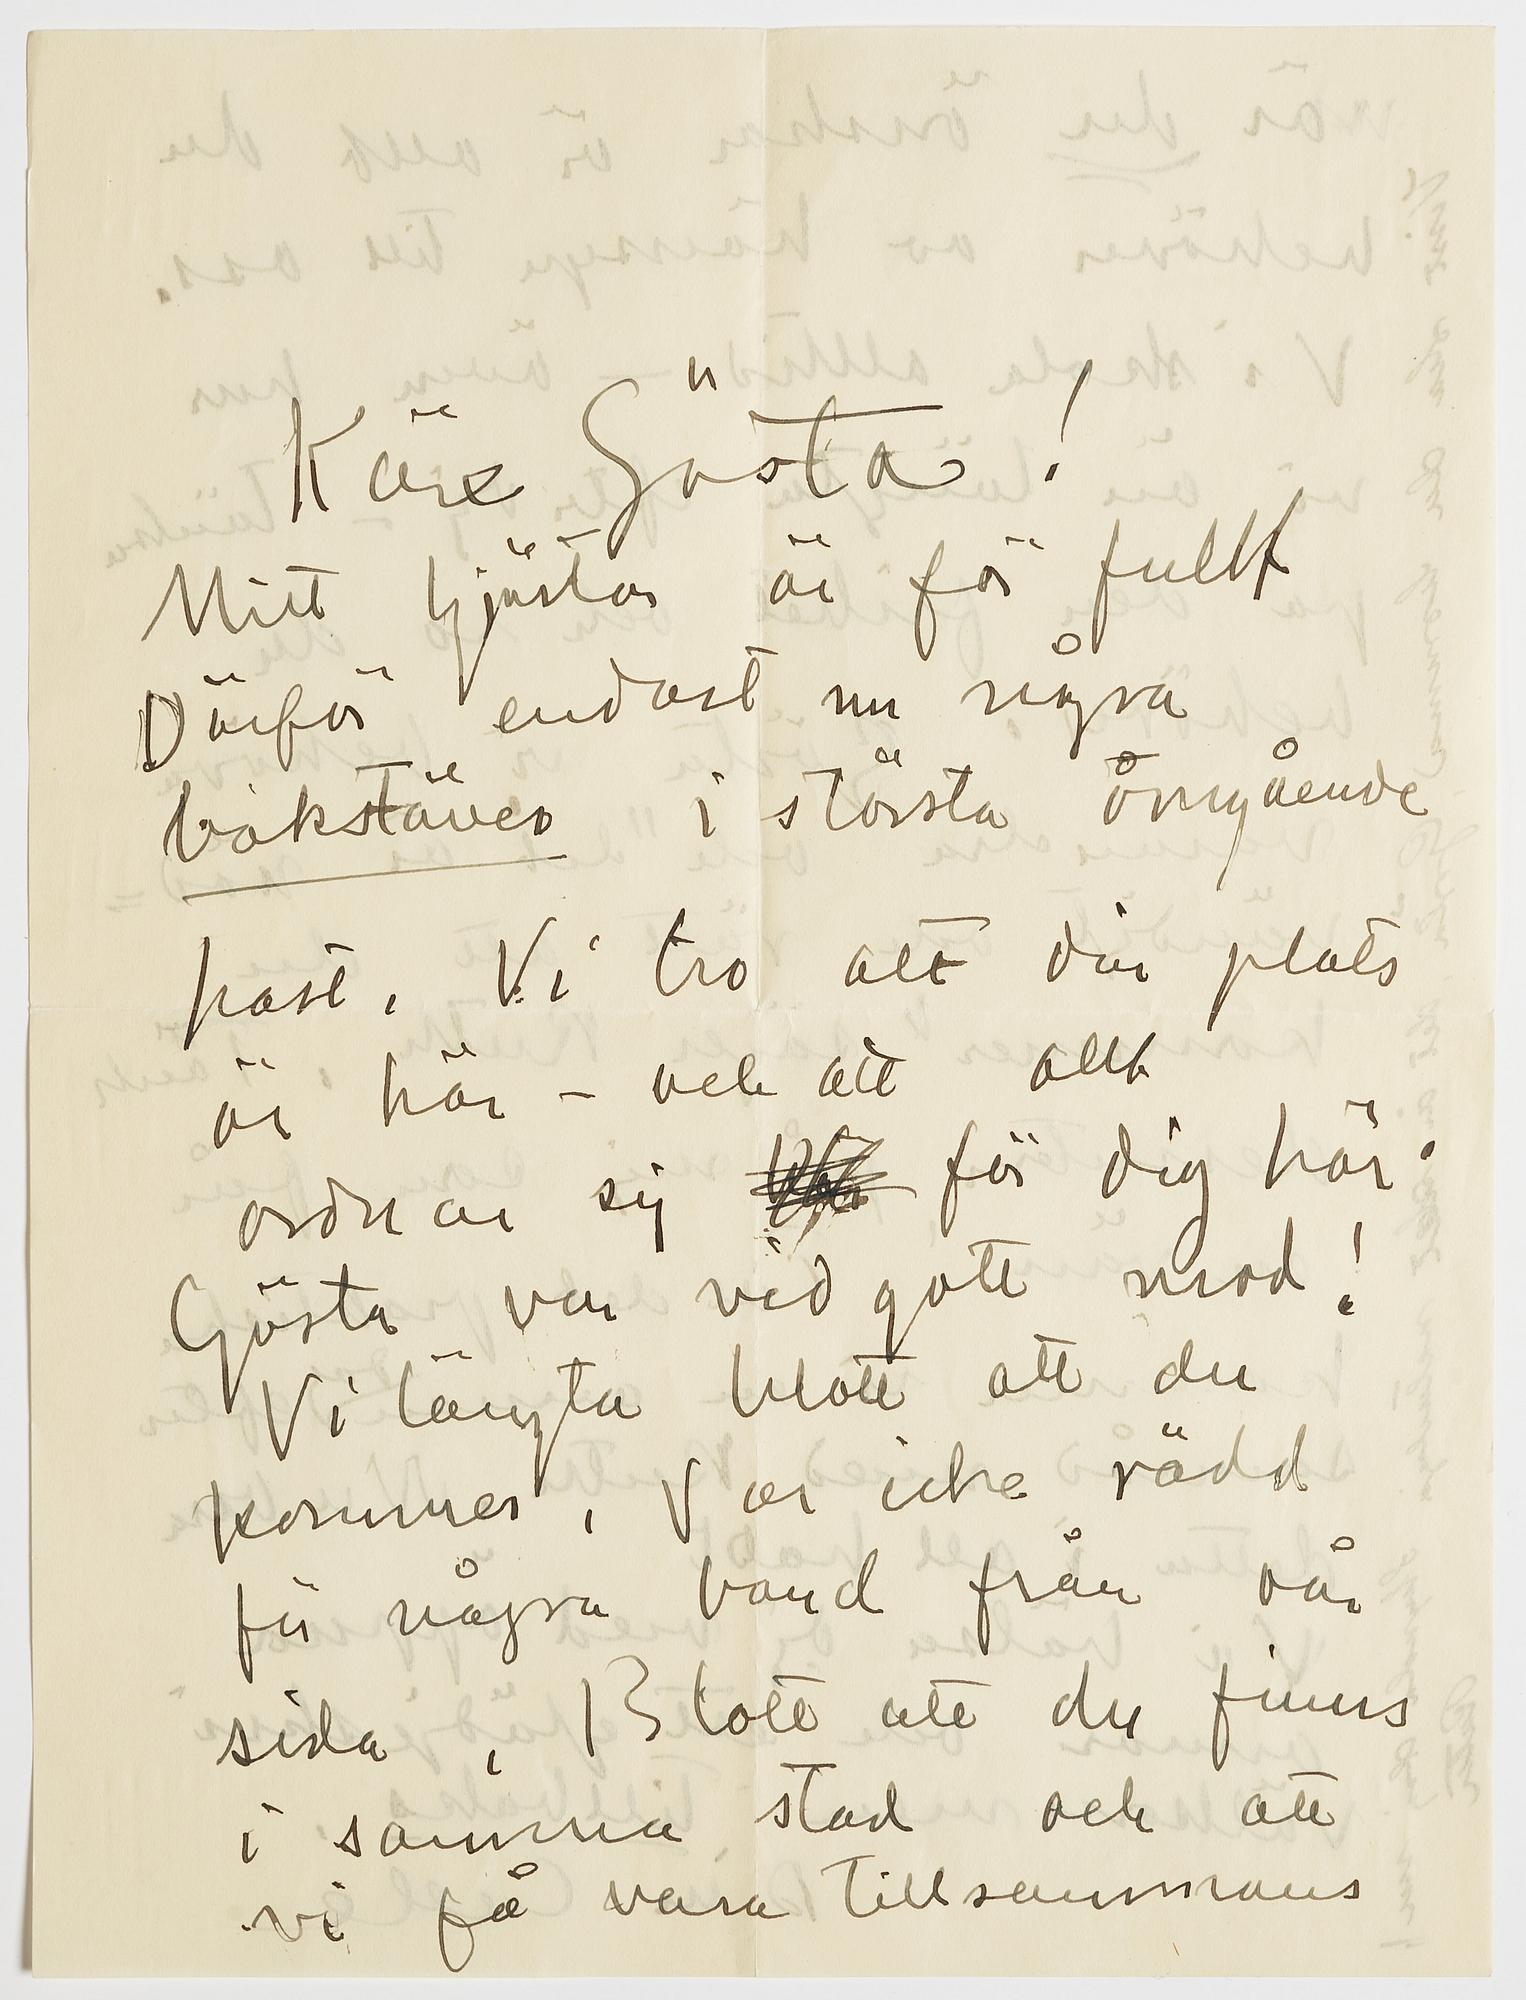 Käre Gösta!
Mitt hjärta är för fullt
Därför endast nu några
bokstäver i största omgående
hast. Vi tro att din plats
är här – och att allt
ordnar sig för dig här.
Gösta var vid gott mod!
Vi längta blott att du
kommer. Var icke rädd
för några band från vår
sida. Blott att du finns
i samma stad och att
vi få vara tillsammans